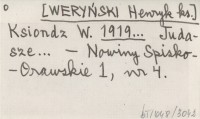 [WERYŃSKI Henryk ks.]
Ksiondz W. 1919... Juda-
sze... — Nowiny Spisko-
-Orawskie 1, nr 4.